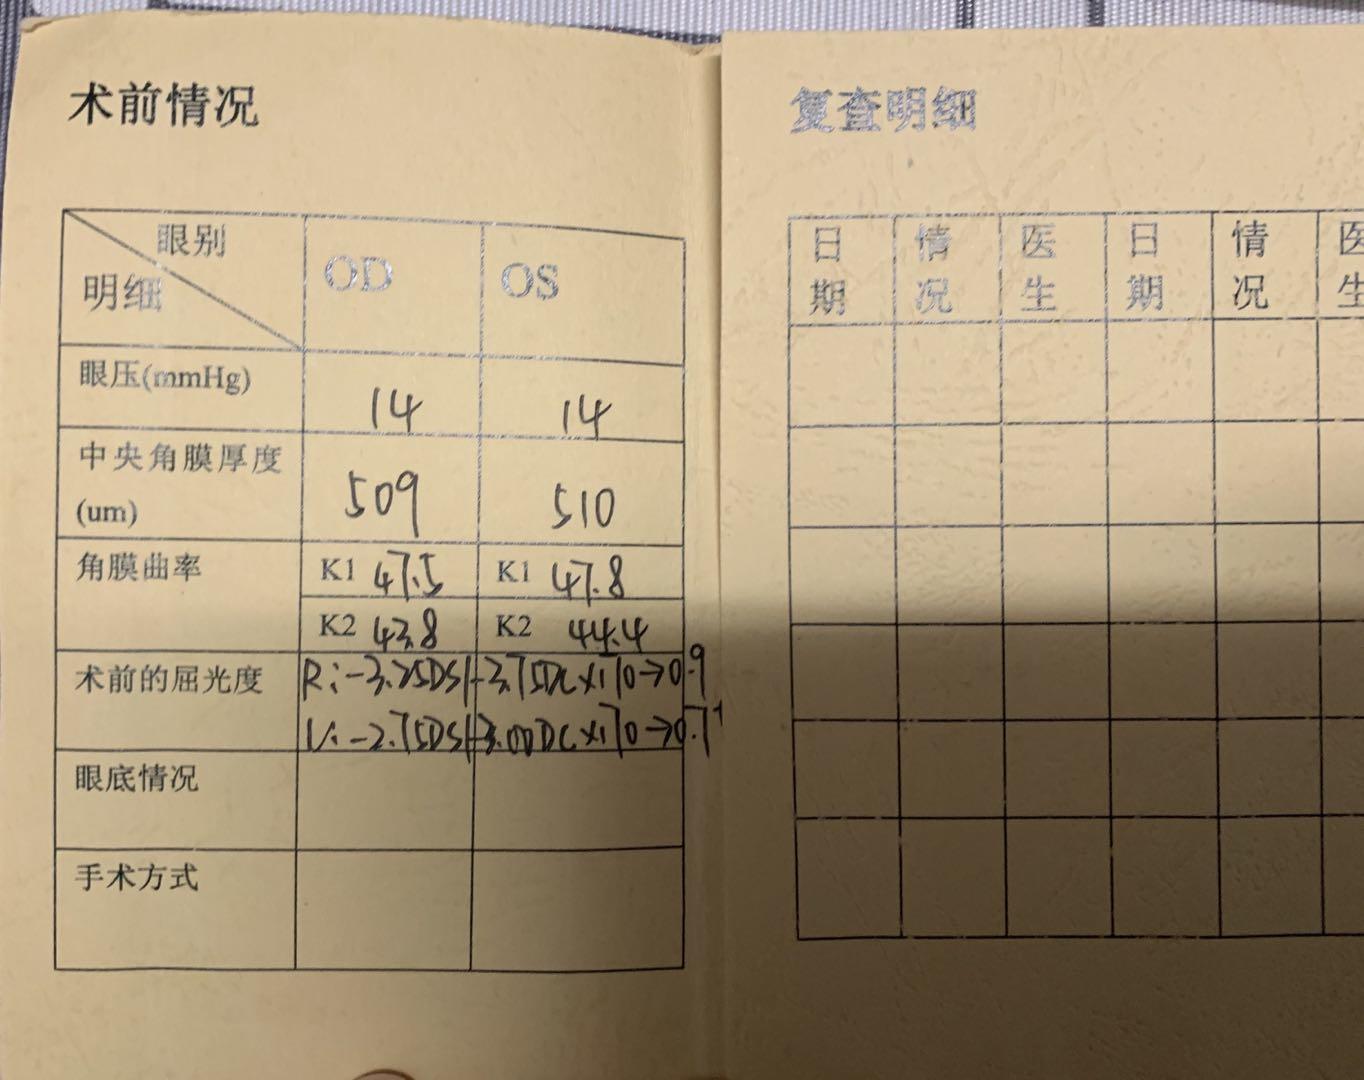 术前情况
眼别
明细
OD
OS
眼压(mmHg)
14
14
中央角膜厚度
(um)
509
510
角膜曲率
K1 47.5
K1 47.8
K2 43.8
K2 44.4
术前的屈光度
R:-3.25DS/-3.75DC×170→0.9
L:-2.75DS/-3.00DC×170→0.7+
眼底情况
手术方式
复查明细
日期
情况
医生
日期
情况
医生